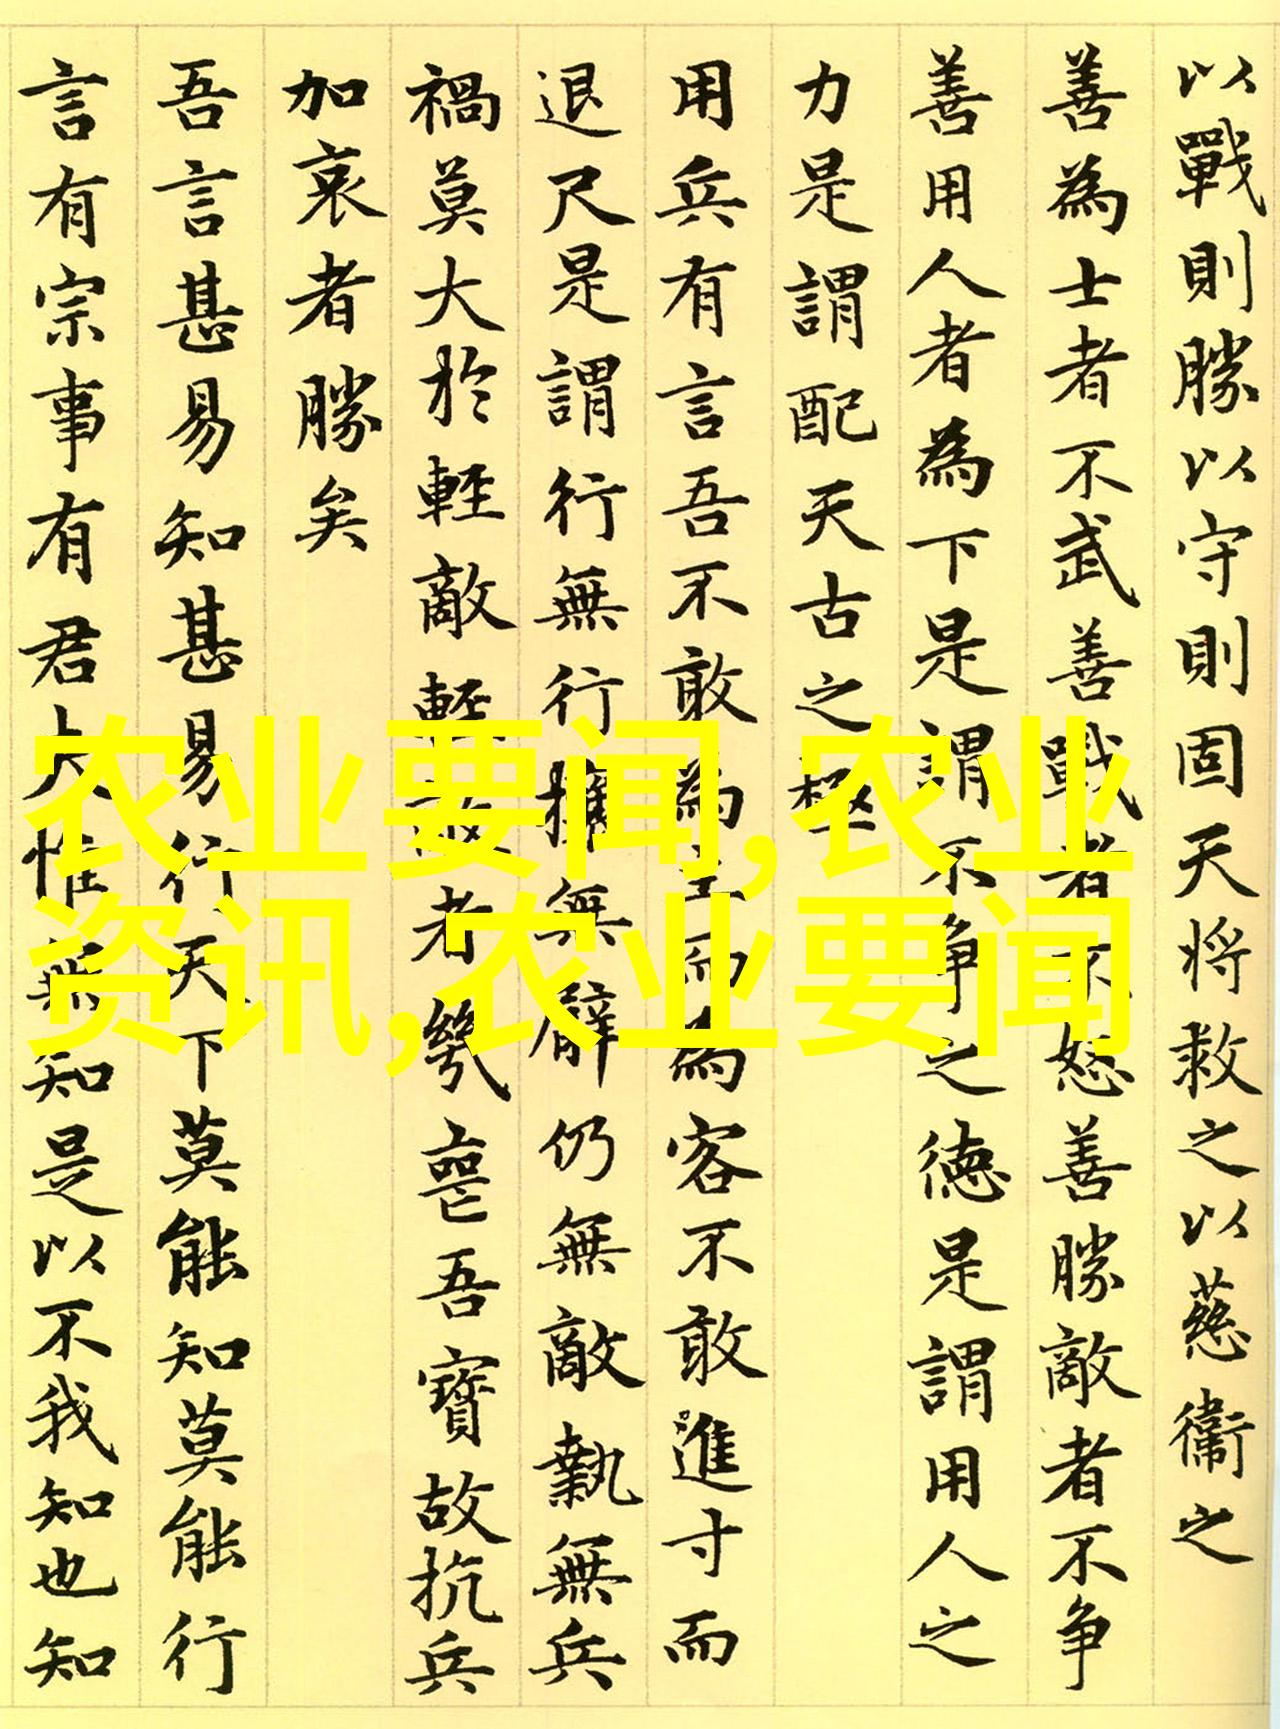 以戰則勝以守則固天将救之以慈衞之
善為士者不武善戰者不怒善勝敵者不争
善用人者為下是謂不争之德是謂用人之
力是謂配天古之極
用兵有言吾不敢為主而為客不敢進寸而
退尺是謂行無行攘無臂仍無敵執無兵
禍莫大於輕敵輕敵者幾喪吾寶故抗兵
加哀者勝矣
吾言甚易知甚易行天下莫能知莫能行
言有宗事有君夫惟無知是以不我知也知
农业要闻,农业
资讯,农业要闻